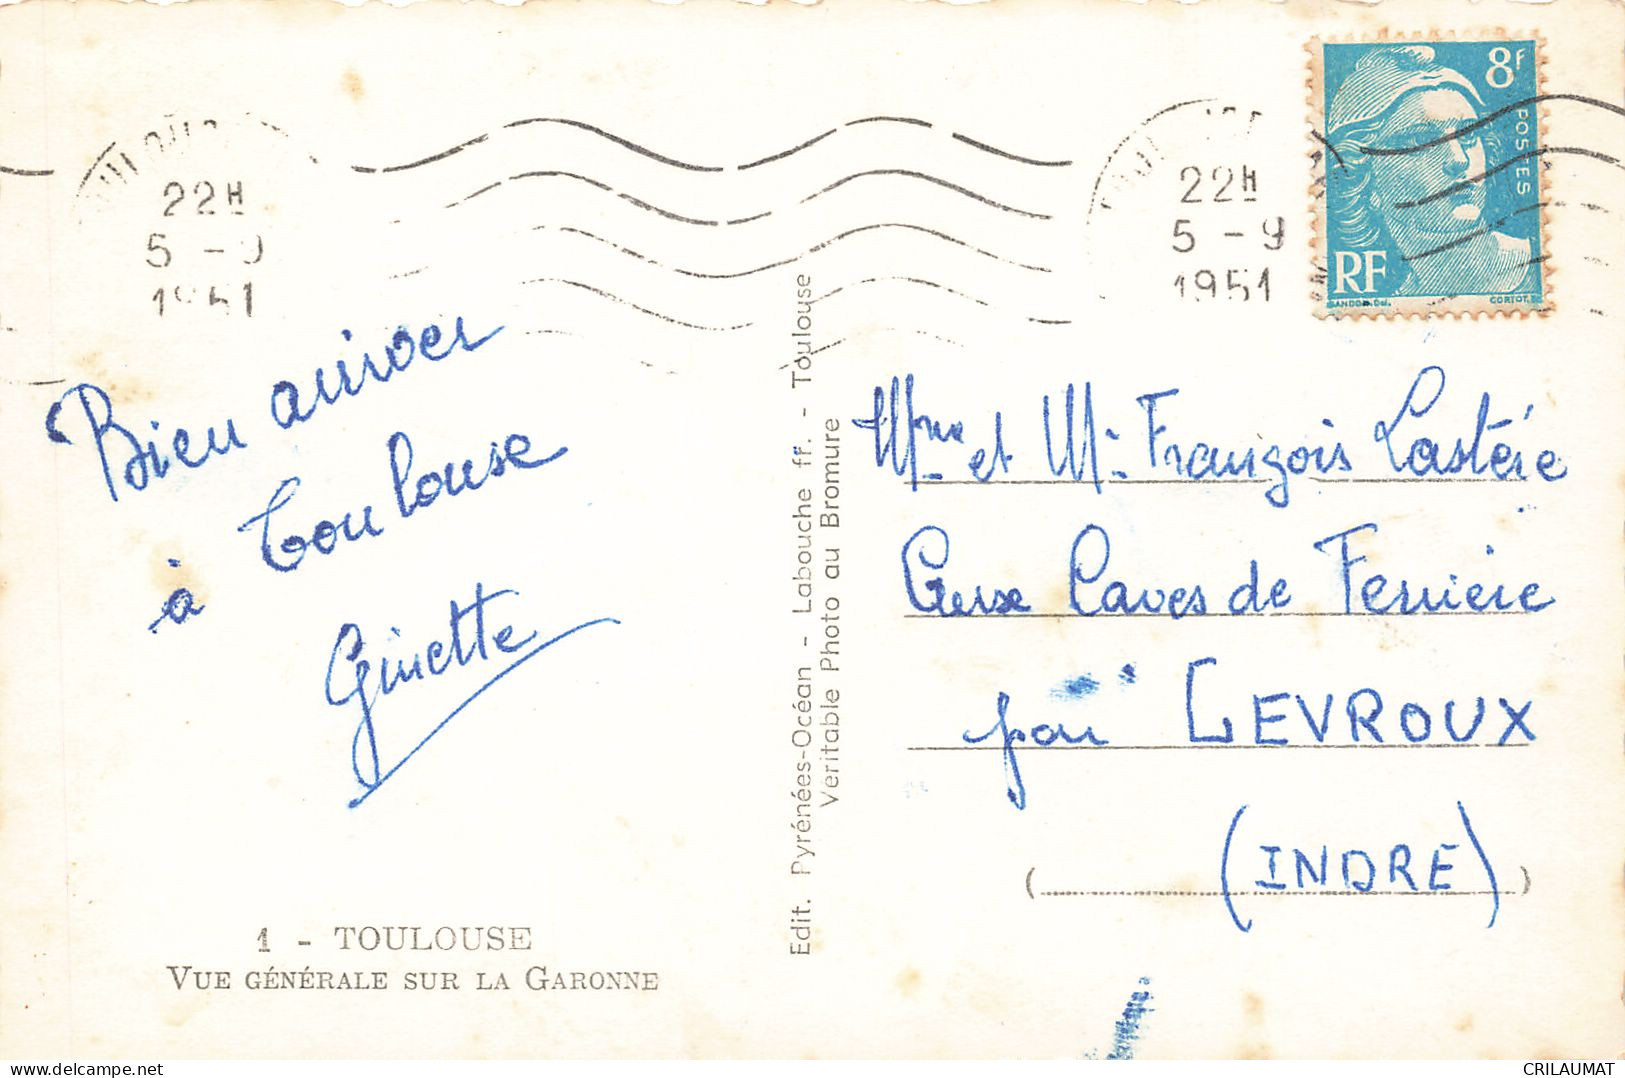 22H
5 - 9
1951
22H
5 - 9
1951
8F
POSTES
RF
GANDON. Del.
CORTOT. Sc.
Bien arriver
à Toulouse
Ginette
Mme et Mr François Lastère
Aux Caves de Ferrière
par LEVROUX
(INDRE)
Edit. Pyrénées-Océan - Labouche ff. - Toulouse
Véritable Photo au Bromure
1 - TOULOUSE
VUE GÉNÉRALE SUR LA GARONNE
CRILAUMAT